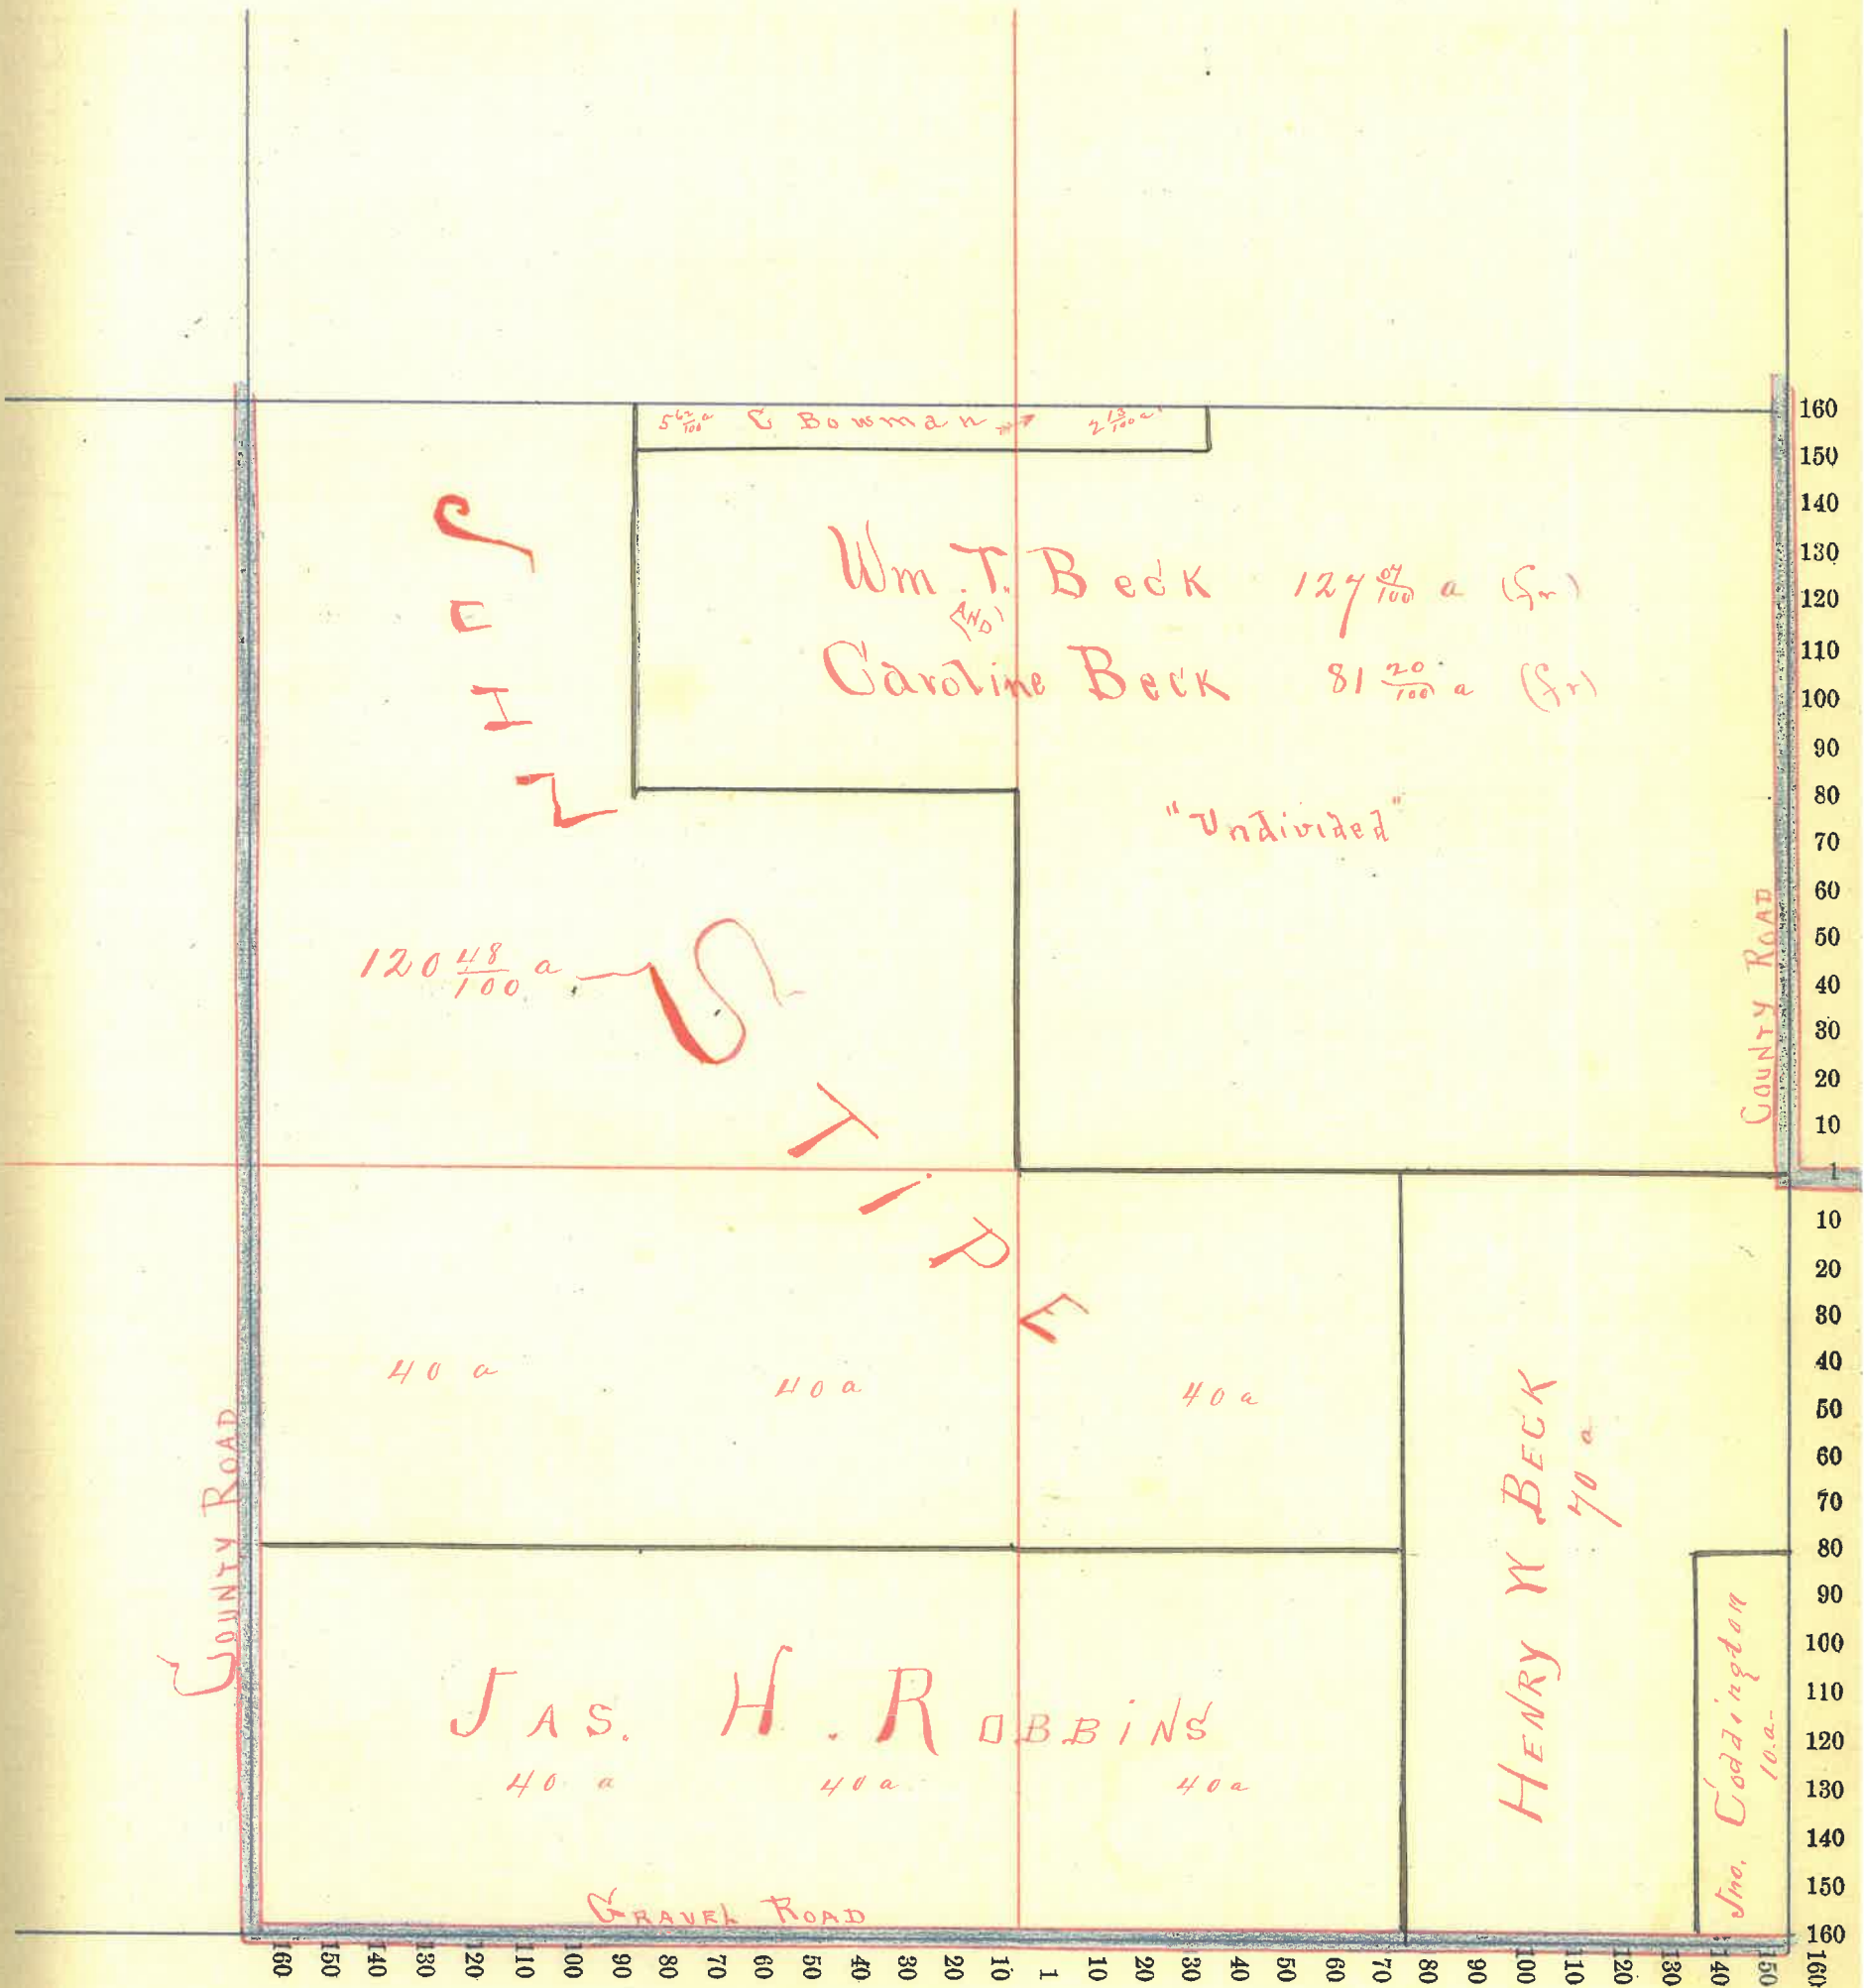 5 62/100 a C Bowman 2 13/100 a
Wm. T. Beck 127 07/100 a (fr)
(AND)
Caroline Beck 81 20/100 a (fr)
"Undivided"
120 48/100 a
STIPE
COUNTY ROAD
40 a 40 a 40 a
HENRY W BECK
70 a
COUNTY ROAD
JAS. H. ROBBINS
40 a 40 a 40 a
Jno. Coddington
10 a
GRAVEL ROAD
160
150
140
130
120
110
100
90
80
70
60
50
40
30
20
10
1
10
20
30
40
50
60
70
80
90
100
110
120
130
140
150
160
160 150 140 130 120 110 100 90 80 70 60 50 40 30 20 10 1 10 20 30 40 50 60 70 80 90 100 110 120 130 140 150 160